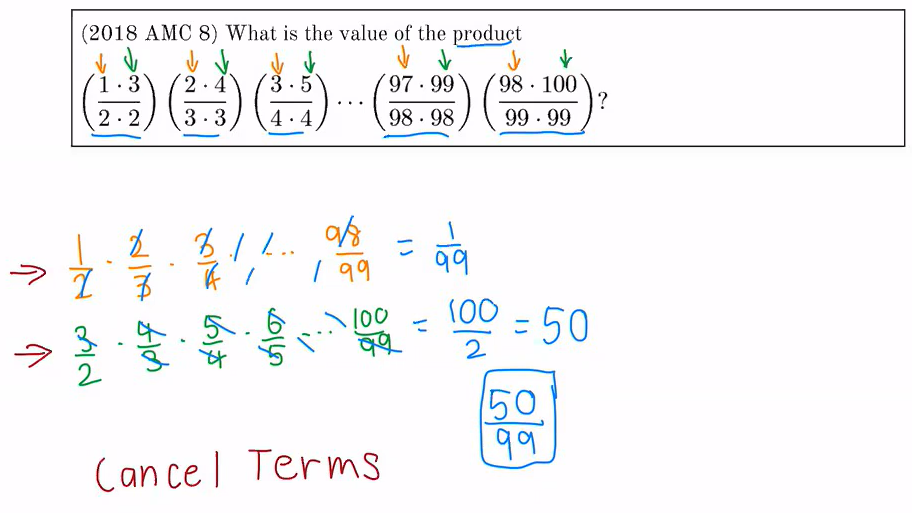 (2018 AMC 8) What is the value of the product
(1 · 3 / 2 · 2) (2 · 4 / 3 · 3) (3 · 5 / 4 · 4) ⋯ (97 · 99 / 98 · 98) (98 · 100 / 99 · 99)?
→ 1/2 · 2/3 · 3/4 ⋯ 98/99 = 1/99
→ 3/2 · 4/3 · 5/4 · 6/5 ⋯ 100/99 = 100/2 = 50
50/99
Cancel Terms